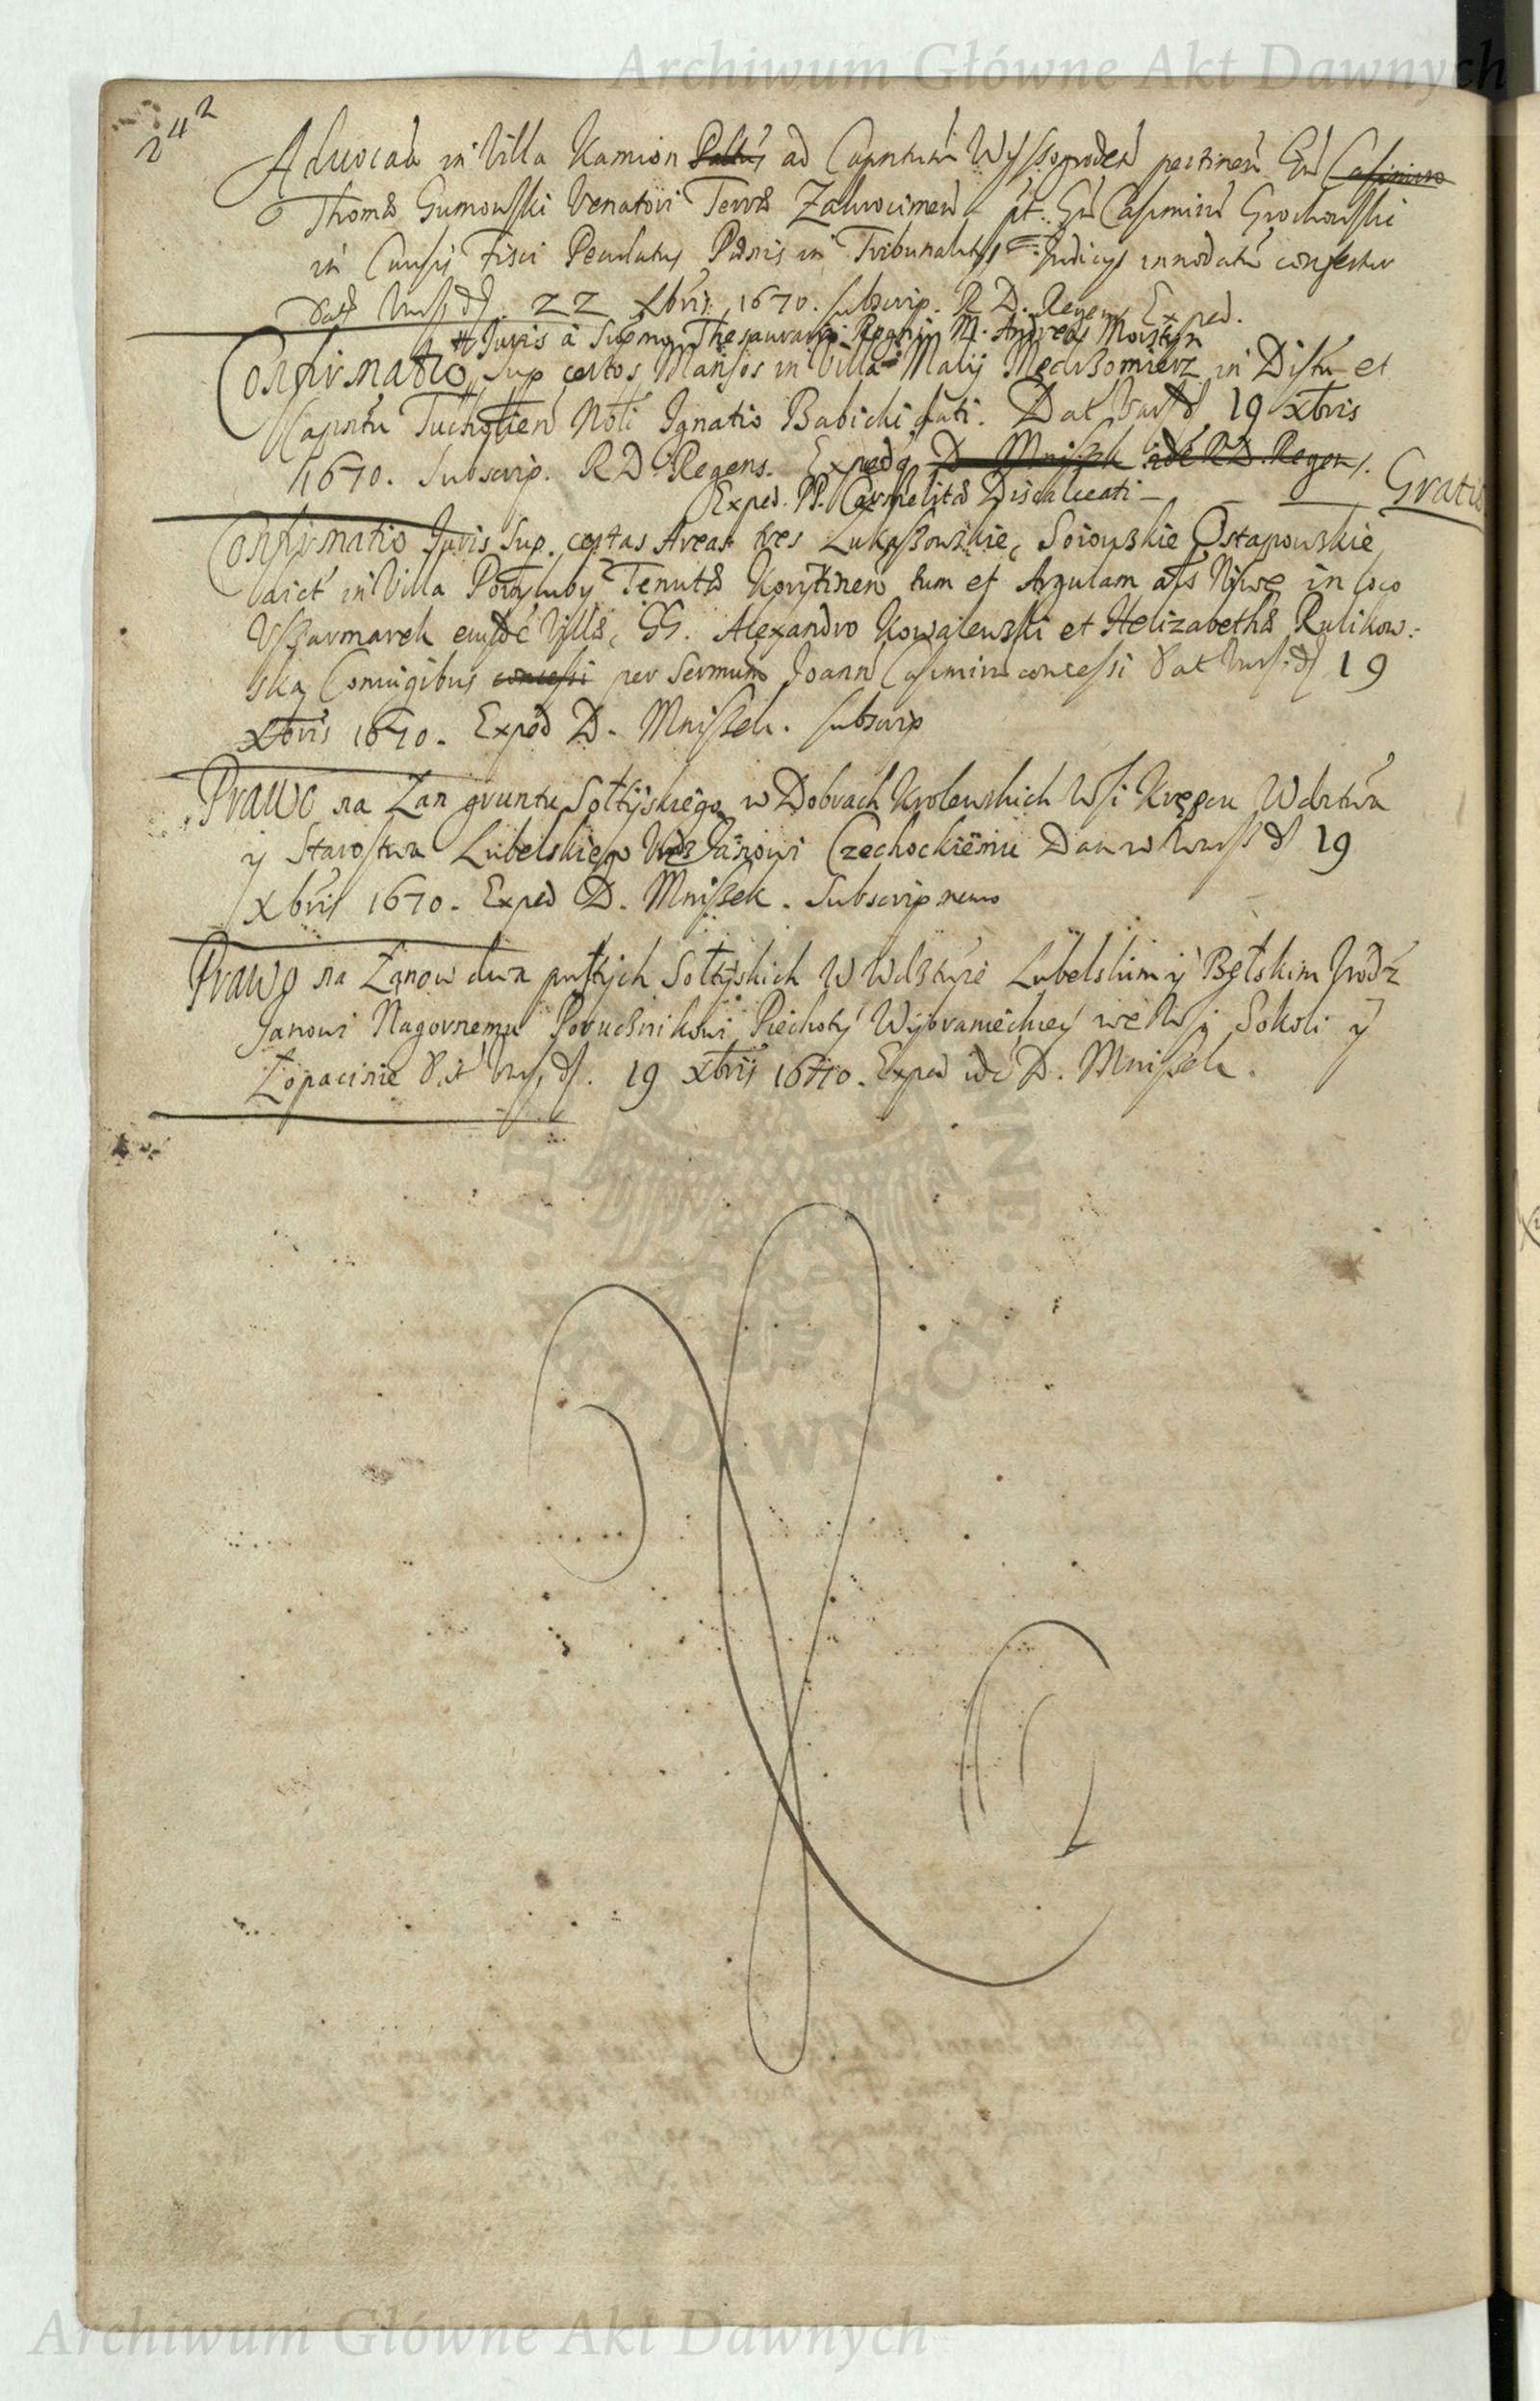 Archiwum Główne Akt Dawnych
242
Advocatia in Villa Kamion ad Capntum Wyssogroden pertinen Gn Casimiro
Thomæ Gumowski Venatori Terræ Zakrocimen Gn Casimirũ Grochowski
in Causis Fisci Peculatus in Tribunalitys Judicys innodatũ confertur
Dat 22 Xbris 1670. subscrip. R D. Regens Exped.
# Juris à Supmo Thesaurario Regni M. Andrea Morstyn
Confirmatio Sup certos Mansos in Villa Maly Mędzomierz in Distu et
Capntu Tucholien Nbli Ignatio Babicki dati. Dat Vars d 19 xbris
1670. Subscrip. R D. Regens. Exped D Mniszek idē R D. Regens.
Exped. PP. Carmelitæ Discalceati Gratis
Confirmatio Juris Sup. certas Areas tres Lukaszowskie, Ostapowskie
dict in Villa Tenutæ tum et Argulam als in loco
Uszarmarek eiusdē Villæ, GG. Alexandro Kowalewski et Helizabethæ Rulikow:
ska Coniugibus concessi per Sermum Joann Casimirũ concessi Dat 19
xbris 1670. Exped D. Mniszek. subscrip
Prawo na Łan gruntu Sołtyskiego w Dobrach Krolewskich Wsi Krępcu
y Starostwa Lubelskiego Janowi Czechockiemu Dan w Wars d 19
Xbris 1670. Exped D. Mniszek. Subscrip nemo
Prawo na Łanow dwa pustych Sołtyskich W Lubelskim y Bełskim
Janowi Nagornemu Porucznikowi Piechoty Wybranieckiey we Wsi Sokoli y
Łopacinie 19 xbris 1670. Exped idē D. Mniszek.
Archiwum Główne Akt Dawnych